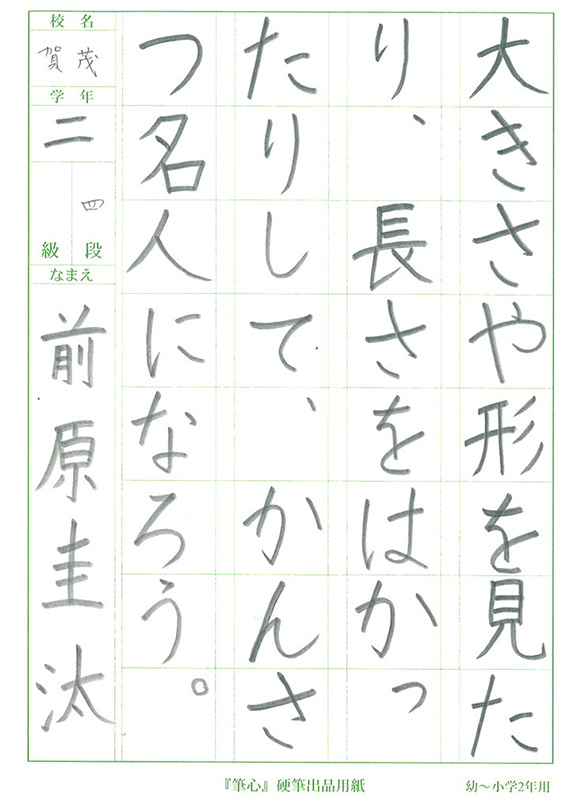 大きさや形を見た
り、長さをはかっ
たりして、かんさ
つ名人になろう。
校名
賀茂
学年
二
四
級段
なまえ
前原圭汰
『筆心』硬筆出品用紙
幼〜小学2年用